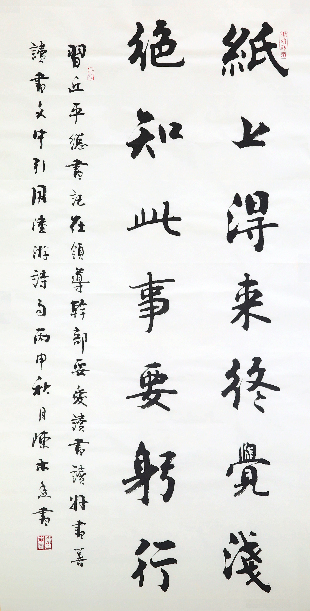 紙上得来終覺淺
絕知此事要躬行
習近平總書記在領導幹部要愛讀書讀好書善
讀書文中引用陸游詩句丙申秋月陳永
書